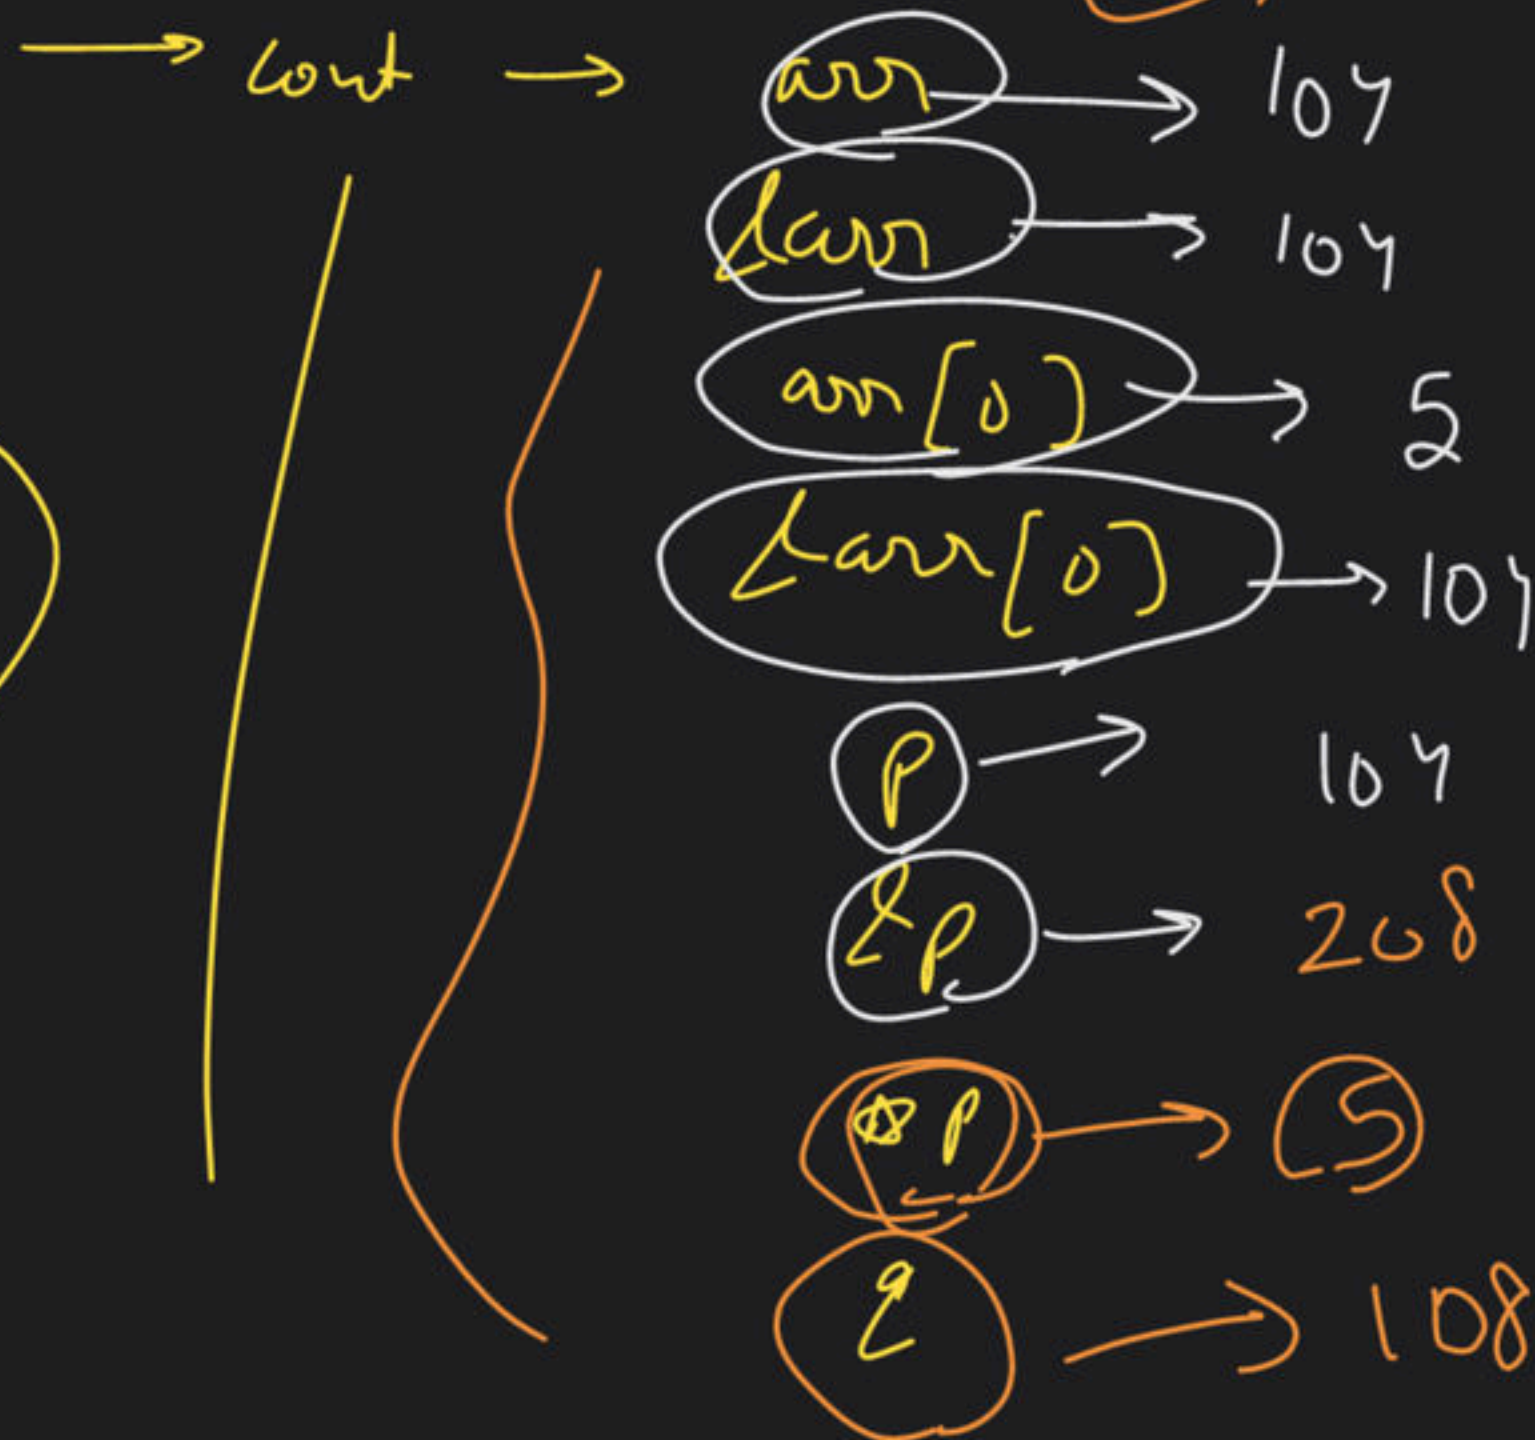 → cout → arr → 104
&arr → 104
arr[0] → 5
&arr[0] → 104
p → 104
&p → 208
*p → 5
q → 108